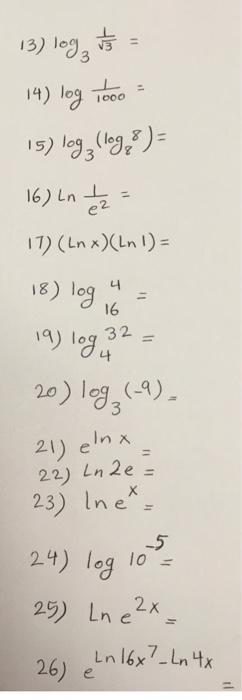 13) log₃ 1/√3 =
14) log 1/1000 =
15) log₃(log₈ 8)=
16) Ln 1/e² =
17) (Ln x)(Ln 1) =
18) log₁₆ 4 =
19) log₄ 32 =
20) log₃ (-9) =
21) e^ln x =
22) Ln 2e =
23) ln eˣ =
24) log 10⁻⁵ =
25) Ln e²ˣ =
26) e^Ln 16x⁷ - Ln 4x =